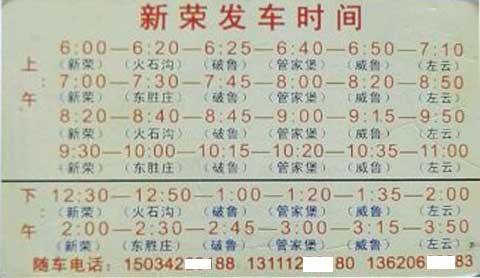 新荣发车时间
上午
6:00—6:20—6:25—6:40—6:50—7:10
(新荣) (火石沟) (破鲁) (管家堡) (威鲁) (左云)
7:00—7:30—7:45—8:00—8:20—8:50
(新荣) (东胜庄) (破鲁) (管家堡) (威鲁) (左云)
8:20—8:40—8:45—9:00—9:15—9:50
(新荣) (火石沟) (破鲁) (管家堡) (威鲁) (左云)
9:30—10:00—10:15—10:20—10:35—11:00
(新荣) (东胜庄) (破鲁) (管家堡) (威鲁) (左云)
下午:
12:30—12:50—1:00—1:20—1:35—2:00
(新荣) (火石沟) (破鲁) (管家堡) (威鲁) (左云)
2:00—2:30—2:45—3:00—3:20—3:50
(新荣) (东胜庄) (破鲁) (管家堡) (威鲁) (左云)
随车电话: 150342 88 131112 80 136206 83